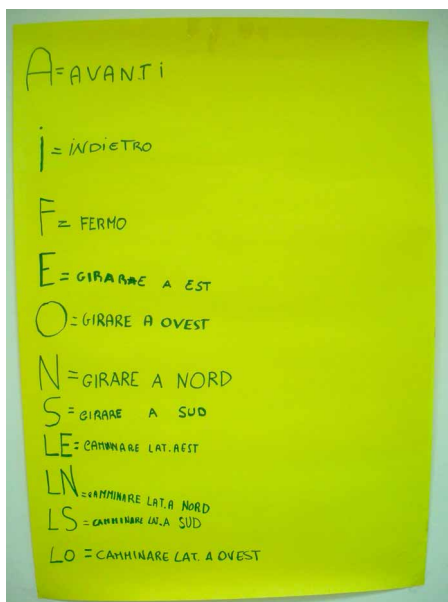 A=AVANTi
i = iNDiETRO
F = FERMO
E = GIRARE A EST
O = GIRARE A OVEST
N = GIRARE A NORD
S = GIRARE A SUD
LE = CAMMINARE LAT. A EST
LN = CAMMINARE LAT. A NORD
LS = CAMMINARE LAT. A SUD
Lo = CAMMINARE LAT. A OVEST